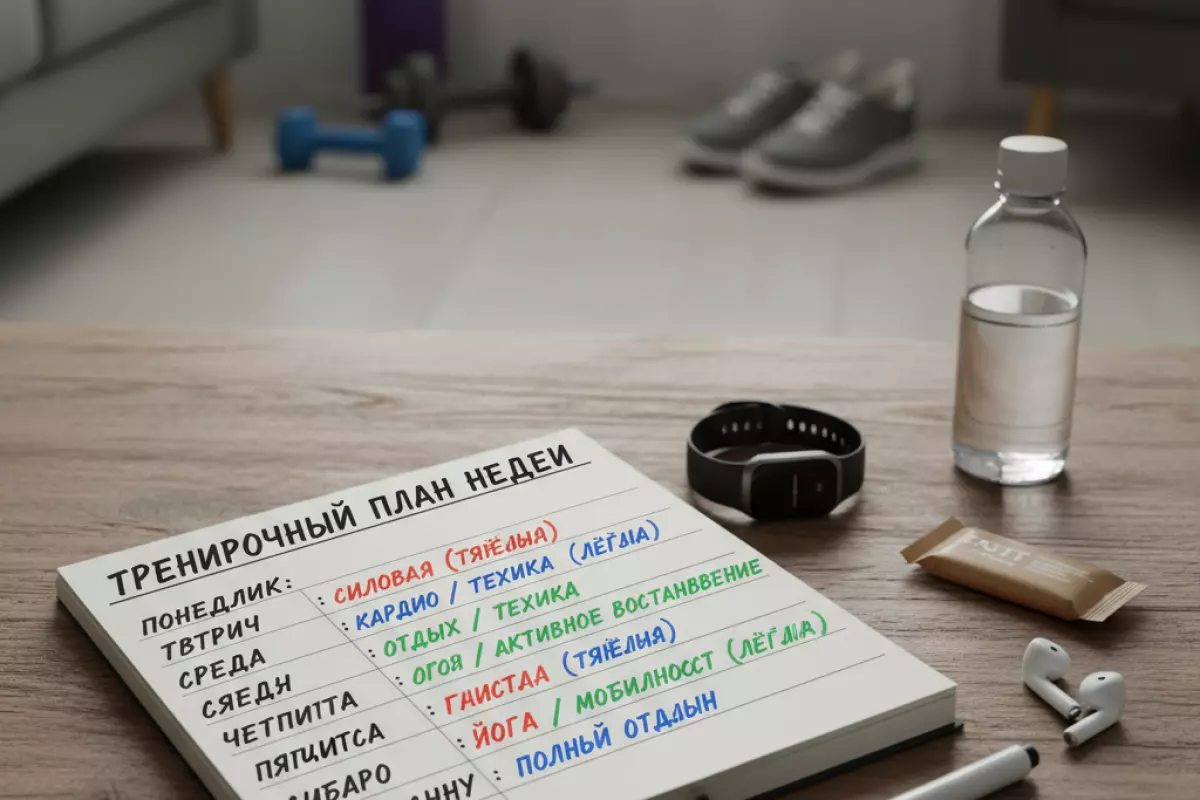 ТРЕНИРОЧНЫЙ ПЛАН НЕДЕИ
ПОНЕДЛИК: : СИЛОВАЯ (ТЯЖЕЛЫЯ)
ТВТРИЧ : КАРДИО / ТЕХИКА (ЛЁГДІА)
СРЕДА : ОТДЫХ / ТЕХИКА
СЯЕДН : ОГОЯ / АКТИВНОЕ ВОСТАНВВЕНИЕ
ЧЕТПИТТА : ГНИСТДА (ТЯЖЕЛЫЯ)
ПЯТЦИТСА : ЙОГА / МОБИЛНОССТ (ЛЁГДІА)
ИБАРО : ПОЛНЫЙ ОТДДЫН
АННУ